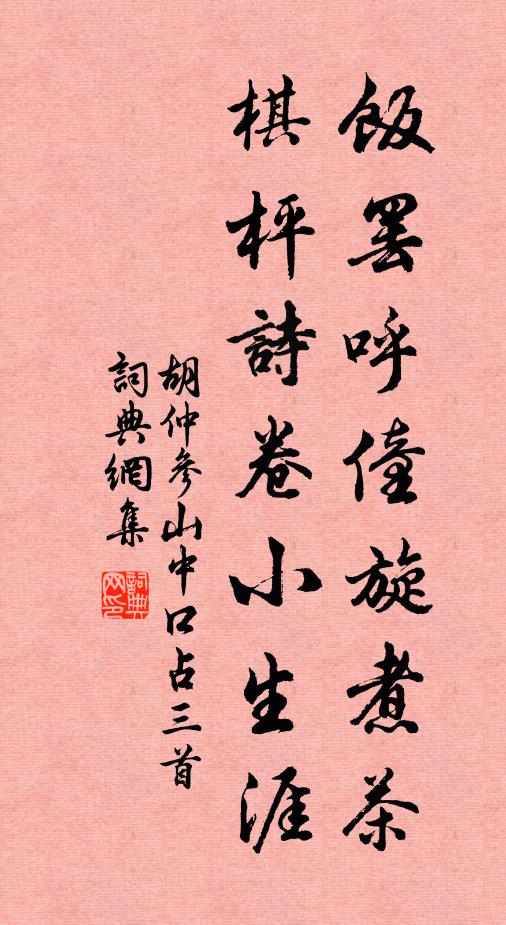 飯罷呼僮旋煮茶
棋枰詩卷小生涯
胡仲參山中口占三首
詞典網集
詞典网印